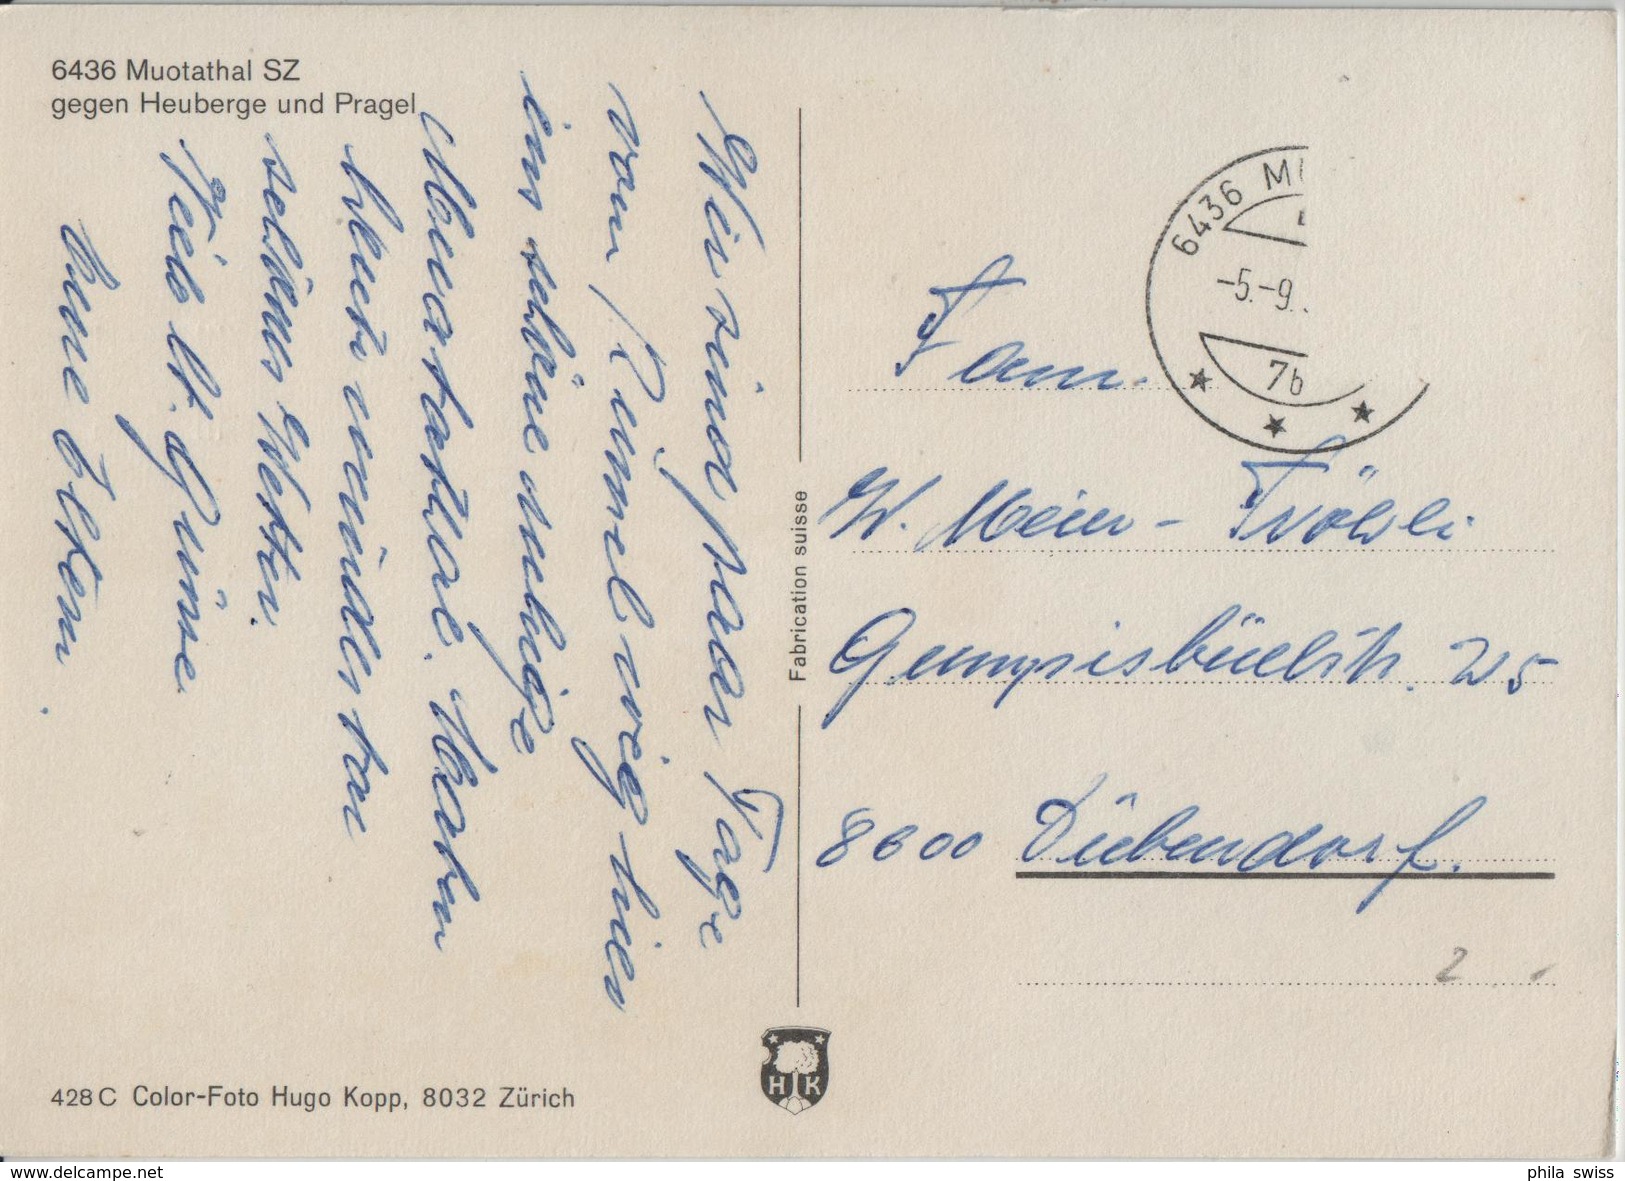 6436 Muotathal SZ
gegen Heuberge und Pragel
Wir sind paar Tage
vom Rümel weg hier
ins schöne ruhige
Muotathal. Haben
heute wunderbar
schönes Wetter.
Viele lb. Grüsse
Eure Eltern.
Fabrication suisse
6436 MU
-5.-9.
7b
Fam.
W. Meier - Fröhli
Gumpisbüelstr. 25
8600 Dübendorf.
2
H K
428 C Color-Foto Hugo Kopp, 8032 Zürich
www.delcampe.net
phila swiss